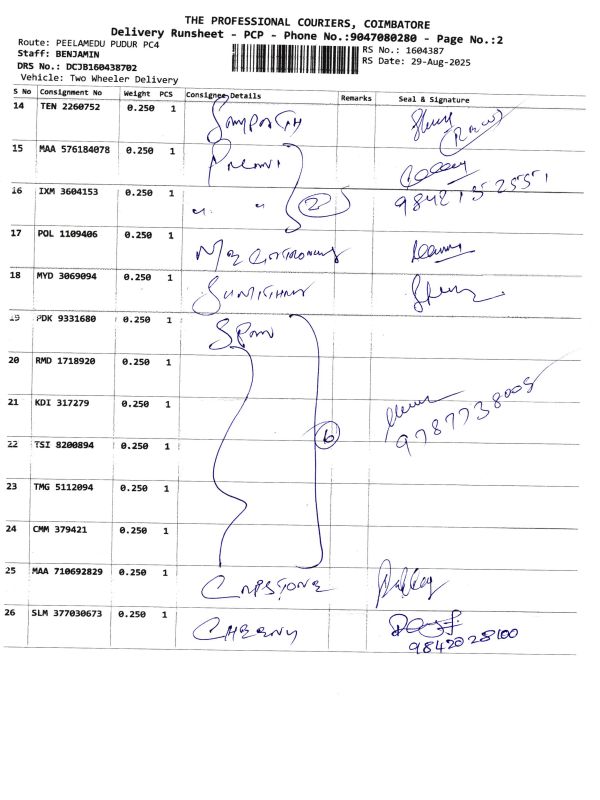 THE PROFESSIONAL COURIERS, COIMBATORE
Delivery Runsheet - PCP - Phone No.:9047080280 - Page No.:2
Route: PEELAMEDU PUDUR PC4
RS No.: 1604387
Staff: BENJAMIN
RS Date: 29-Aug-2025
DRS No.: DCJB160438702
Vehicle: Two Wheeler Delivery
S No Consignment No Weight PCS Consignee Details Remarks Seal & Signature
14 TEN 2260752 0.250 1
15 MAA 576184078 0.250 1
16 IXM 3604153 0.250 1 " " 2
17 POL 1109406 0.250 1
18 MYD 3069094 0.250 1
19 PDK 9331680 0.250 1
20 RMD 1718920 0.250 1
21 KDI 317279 0.250 1 6 9787738005
22 TSI 8200894 0.250 1
23 TMG 5112094 0.250 1
24 CMM 379421 0.250 1
25 MAA 710692829 0.250 1 CAPSTONE
26 SLM 377030673 0.250 1 CHERNY
9842028100